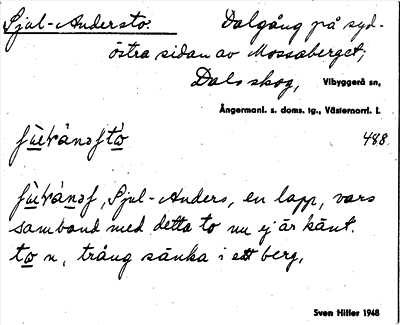 Sjul-Andersto. Dalgång på syd-
östra sidan av Mossaberget,
Dals skog, Vibyggerå sn,
Ångermanl. s. doms. tg., Västernorrl. l.
488
Sjul-Anders, en lapp, vars
samband med detta to nu ej är känt.
to n, trång sänka i ett berg,
Sven Hitler 1948